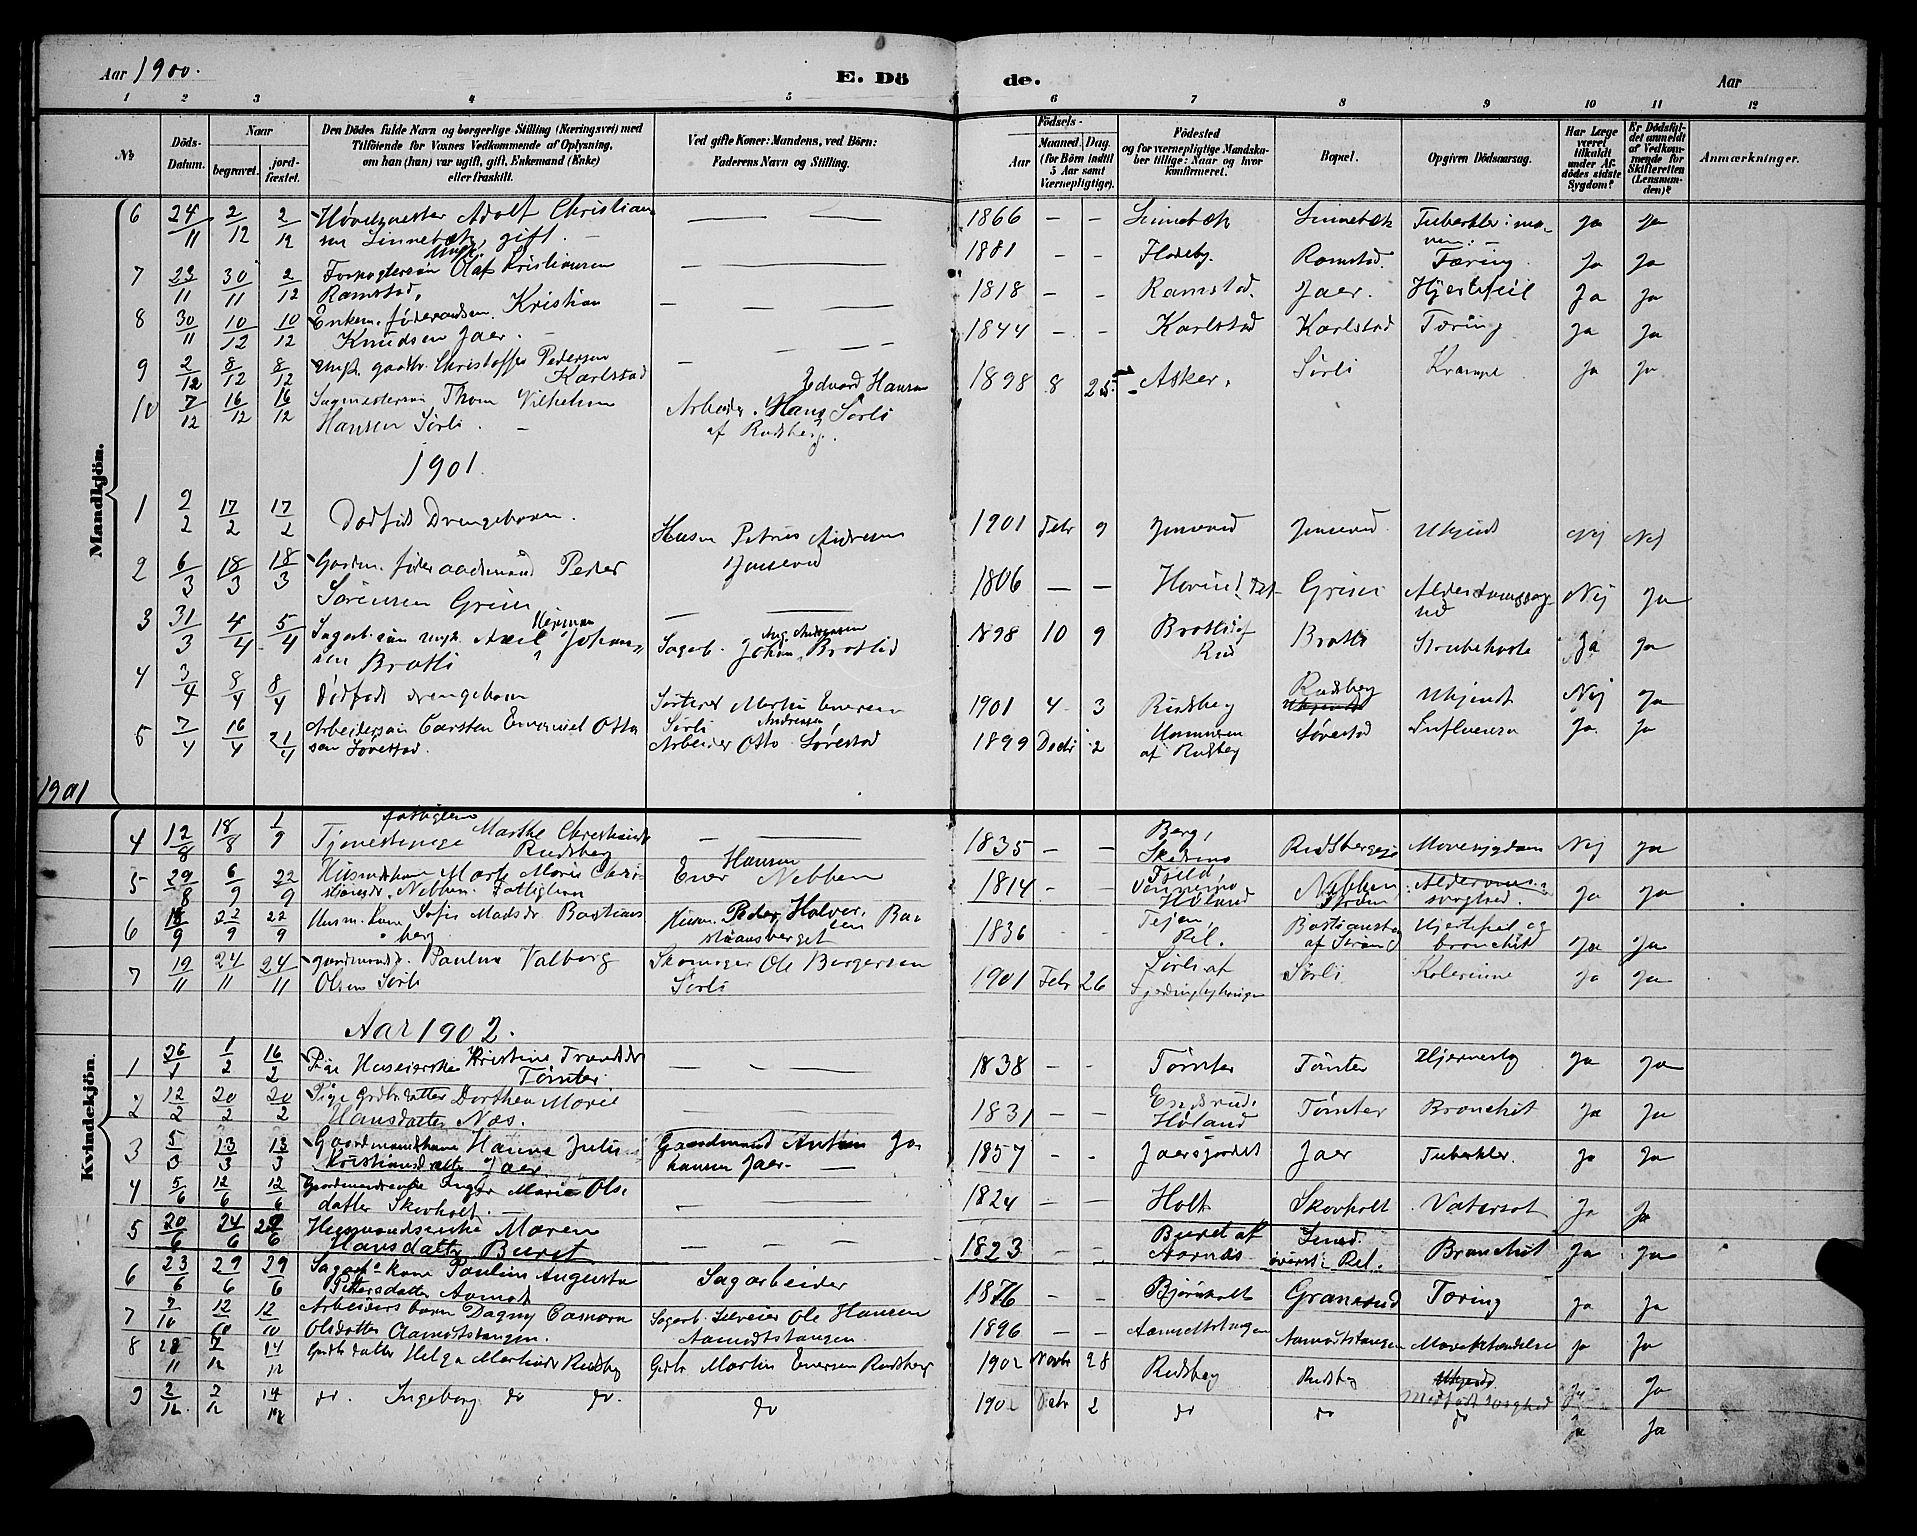 Aar 1900.
E. Dö
de.
Aar
1 2 3 4 5 6 7 8 9 10 11 12
№
Döds-Datum.
Naar
begravet.
jord-fæstet.
Den Dödes fulde Navn og borgerlige Stilling (Næringsvei) med
Tilföiende for Voxnes Vedkommende af Oplysning,
om han (hun) var ugift, gift, Enkemand (Enke)
eller fraskilt.
Ved gifte Koner: Mandens, ved Börn:
Faderens Navn og Stilling.
Födsels-
Aar
Maaned. Dag.
(for Börn indtil
5 Aar samt
Værnepligtige).
Födested
og for værnepligtige Mandska-
ber tillige: Naar og hvor
konfirmeret.
Bopæl.
Opgiven Dödsaarsag.
Har Læge
været
tilkaldt
under Af-
dödes sidste
Sygdom?
Er Dödsfal-
det anmeldt
af Vedkom-
mende for
Skifteretten
(Lensman-
den)?
Anmærkninger.
Mandkjön.
6 24/11 2/12 2/12 Høvelmester Adolf Christian-
sen Linnebæk, gift. — 1866 — — Linnebæk Linnebæk Tuberkler i ma-
ven. Ja Ja
7 23/11 30/11 2/12 Forpagtersøn Ungk. Olaf Kristiansen
Ramstad, — 1881 — — Flateby. Ramstad. Tæring. Ja Ja
8 30/11 10/12 10/12 Enkem. føderaadsm. Kristian
Knudsen Jaer. — 1818 — — Ramstad. Jaer. Hjertefeil Ja Ja
9 2/12 8/12 8/12 Ungk. gaardbr. Christoffer Pedersen
Karlstad — 1844 — — Karlstad Karlstad Tæring Ja Ja
10 7/12 16/12 16/12 Sagmestersøn Thom Vilhelm
Hansen Sørli. — Arbeider. Edvard Hansen Sørli
af Rudsberg. 1898 8 25 Asker. Sørli Krampe Ja Ja
1901.
1 9/2 17/2 17/2 Dødfødt Drengebarn. Husm Petrus Andersen
Jonsrud 1901 Febr 9 Jonsrud Jonsrud. Ukjendt Nej Nej
2 6/3 18/3 18/3 Gaardm. føderaadsmand Peder
Sørensen Grini — 1806 — — Grini Alderdomssvag-
hed Nej Ja
3 31/3 4/4 5/4 Sagarb. søn ungk. Axel Herman Johan-
sen Bratli Sagarb. Johan Aug. Andreasen Bratlid 1898 10 9 Bratli af
Rud Bratli Strubehoste Ja Ja
4 3/4 8/4 8/4 Dødfødt drengebarn Sorterer Martin Enersen
Sørli 1901 4 3 Rudsberg Rudsberg Ukjendt Nej Ja
5 7/4 16/4 21/4 Arbeidersøn Carsten Emanuel Otto-
sen Løvestad. Arbeider Otto Andersen Løvestad 1899 Decbr 2 Hammeren
af Rudsberg Løvestad Influensa Ja Ja
1901
Kvindekjön.
4 12/8 18/8 1/9 Tjenestepige fattiglem Marthe Christiansdr
Rudsberg — 1835 — — Berg,
Skedsmo Rudsbergeje Mavesygdom Nej Ja
5 29/8 6/9 22/9 Husmdskone Marte Marie Chri-
stiansdr. Nebben. Fattiglem Ener Hansen Nebben 1814 — — Høland Nebben Aldersdoms-
svaghed. Ja Ja
6 18/9 22/9 22/9 Husm. kone Sofie Madsdr Bastians-
berg Husm. Peder Halvorsen Ba-
stiansberget 1836 — — Bastiansberg Hjertefeil og
bronchit Ja Ja
7 19/11 24/11 24/11 Gaardmandsd. Pauline Valborg
Olsen Sørli Skomager Ole Børgersen
Sørli 1901 Febr 26 Sørli af Sørli Kolerine Ja Ja
Aar 1902.
1 26/1 1/2 16/2 Pige Huseierske Kristine Trondsdr
Tomter — 1838 — — Tomter Tomter Hjerneslag Ja Ja
2 12/2 20/2 20/2 Pige Grdbr. datter Dorthea Marie
Hansdatter Næs. — 1831 — — Høland Tomter Bronchit Ja Ja
3 5/3 13/3 13/3 Gaardmandskone Hanna Julie
Kristiansdatter Jaer. Gaardmand Anton Jo-
hansen Jaer. — 1857 — — Jaersjordet Jaer Tuberkler. Ja Ja
4 5/6 12/6 12/6 Gaardmandsenke Inger Marie Ols-
datter Skovholt. — 1824 — — Holt Skovholt Vatersot Ja Ja
5 20/6 24/6 29/6 Husmandsenke Maren
Hansdatter Buret — 1823 — — Buret af
Aarnæs Bronchit Ja Ja
6 23/6 29/6 29/6 Sagarb. kone Pauline Augusta
Pettersdatter Aamot Sagarbeider 1876 — — Bjørnholt Granerud Tæring Ja Ja
7 7/10 12/10 12/10 Arbeiders barn Dagny
Olsdatter Aamodtstangen. Sagarb. Ole Hansen
Aamodtstangen. 1896 — — Aamodtstangen Aamodtstangen Mavebetændelse Ja Ja
8 28/11 7/12 14/12 Grdbr datter Helga Martinsdr Rudsberg Grdbr Martin Enersen Rudsberg 1902 Novbr 28 Rudsberg Rudsberg Ukjendt
Medfødt svaghed Ja Ja
9 2/12 7/12 14/12 do. Ingeborg do do. do 1902 Decbr 2 do do do Ja Ja